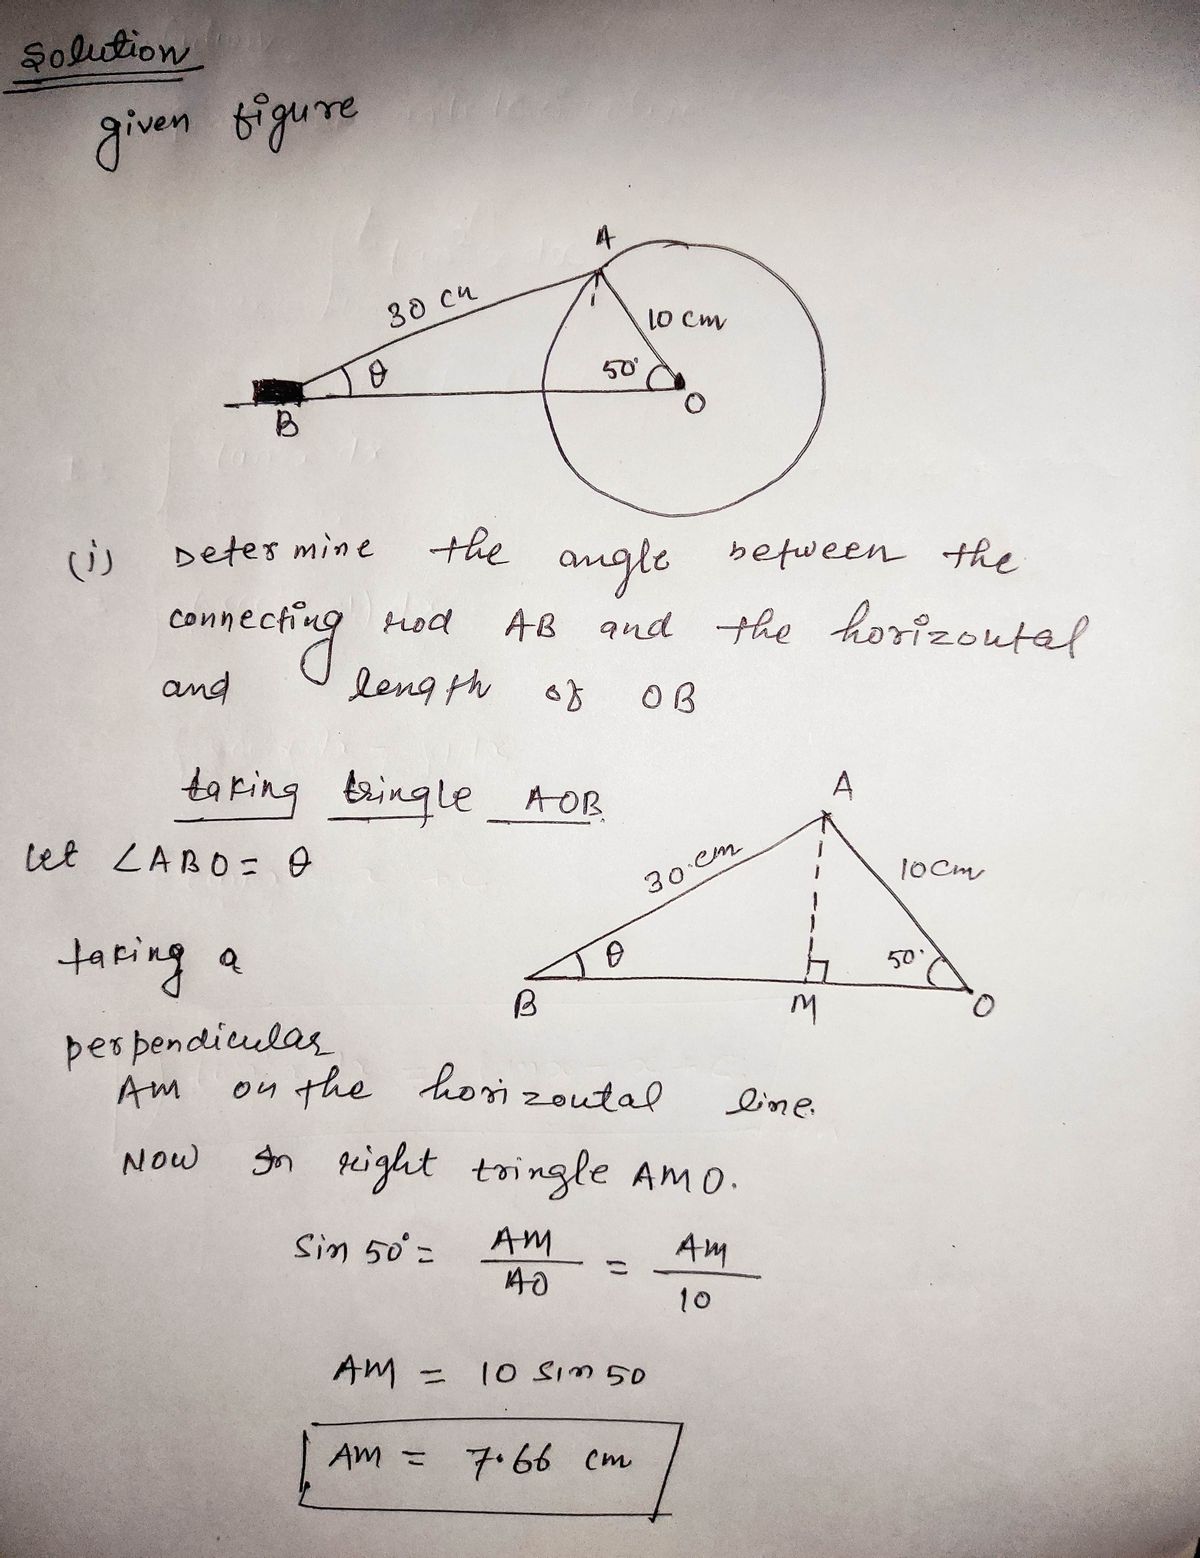 Solution
given figure
A
30 cm
10 cm
θ
50°
B
O
(i) Determine the angle between the
connecting rod AB and the horizontal
and length of OB
taking tringle AOB.
A
let ∠ABO = θ
30 cm
10cm
taking a
θ
50°
B
M
O
perpendicular
AM on the horizontal line.
NOW In right tringle AMO.
Sin 50° = AM/AO = AM/10
AM = 10 Sin 50
AM = 7.66 cm